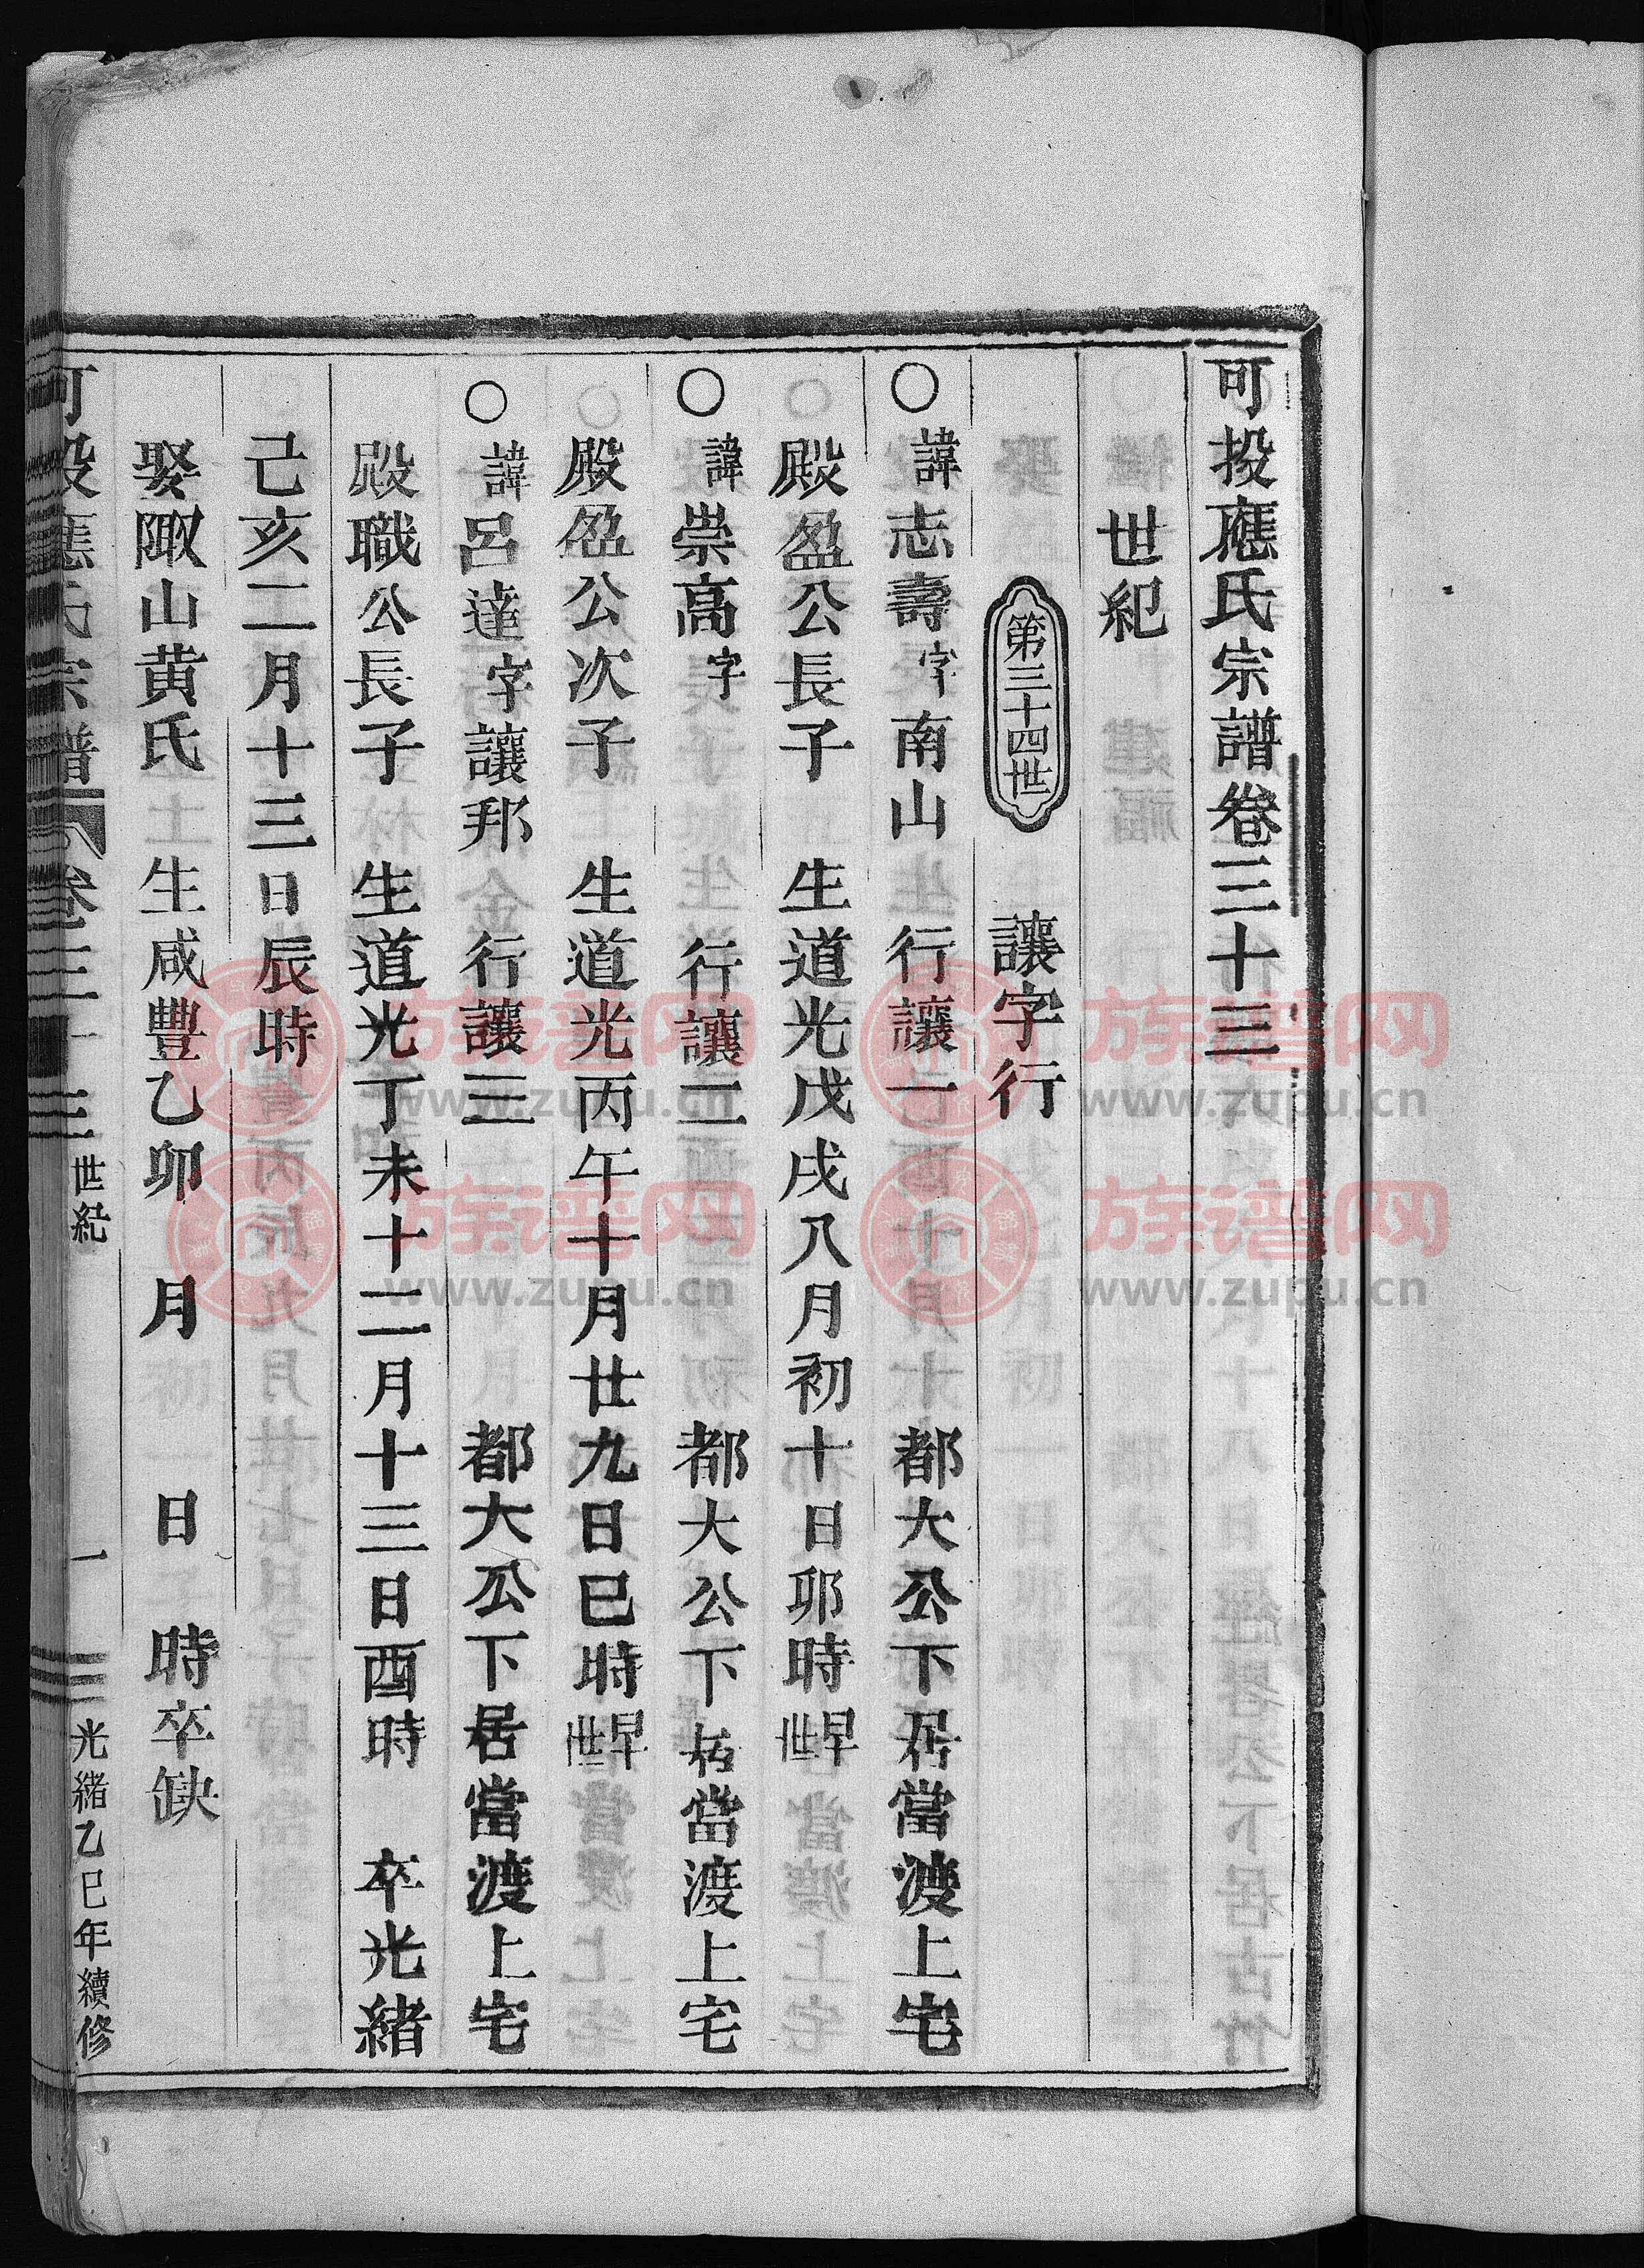 可投應氏宗譜卷三十三
世紀
第三十四世 讓字行
○諱志壽字南山 行讓一 都大公下居當渡上宅
殿盈公長子 生道光戊戌八月初十日卯時早世
○諱崇高字 行讓二 都大公下居當渡上宅
殿盈公次子 生道光丙午十月廿九日巳時早世
○諱呂達字讓邦 行讓三 都大公下居當渡上宅
殿職公長子 生道光丁未十二月十三日酉時 卒光緒
己亥二月十三日辰時
娶陬山黄氏 生咸豐乙卯 月 日 時卒缺
可投應氏宗譜 卷三十三 世紀 一 光緒乙巳年續修
族谱网
www.zupu.cn
族谱网
www.zupu.cn
族谱网
www.zupu.cn
族谱网
www.zupu.cn